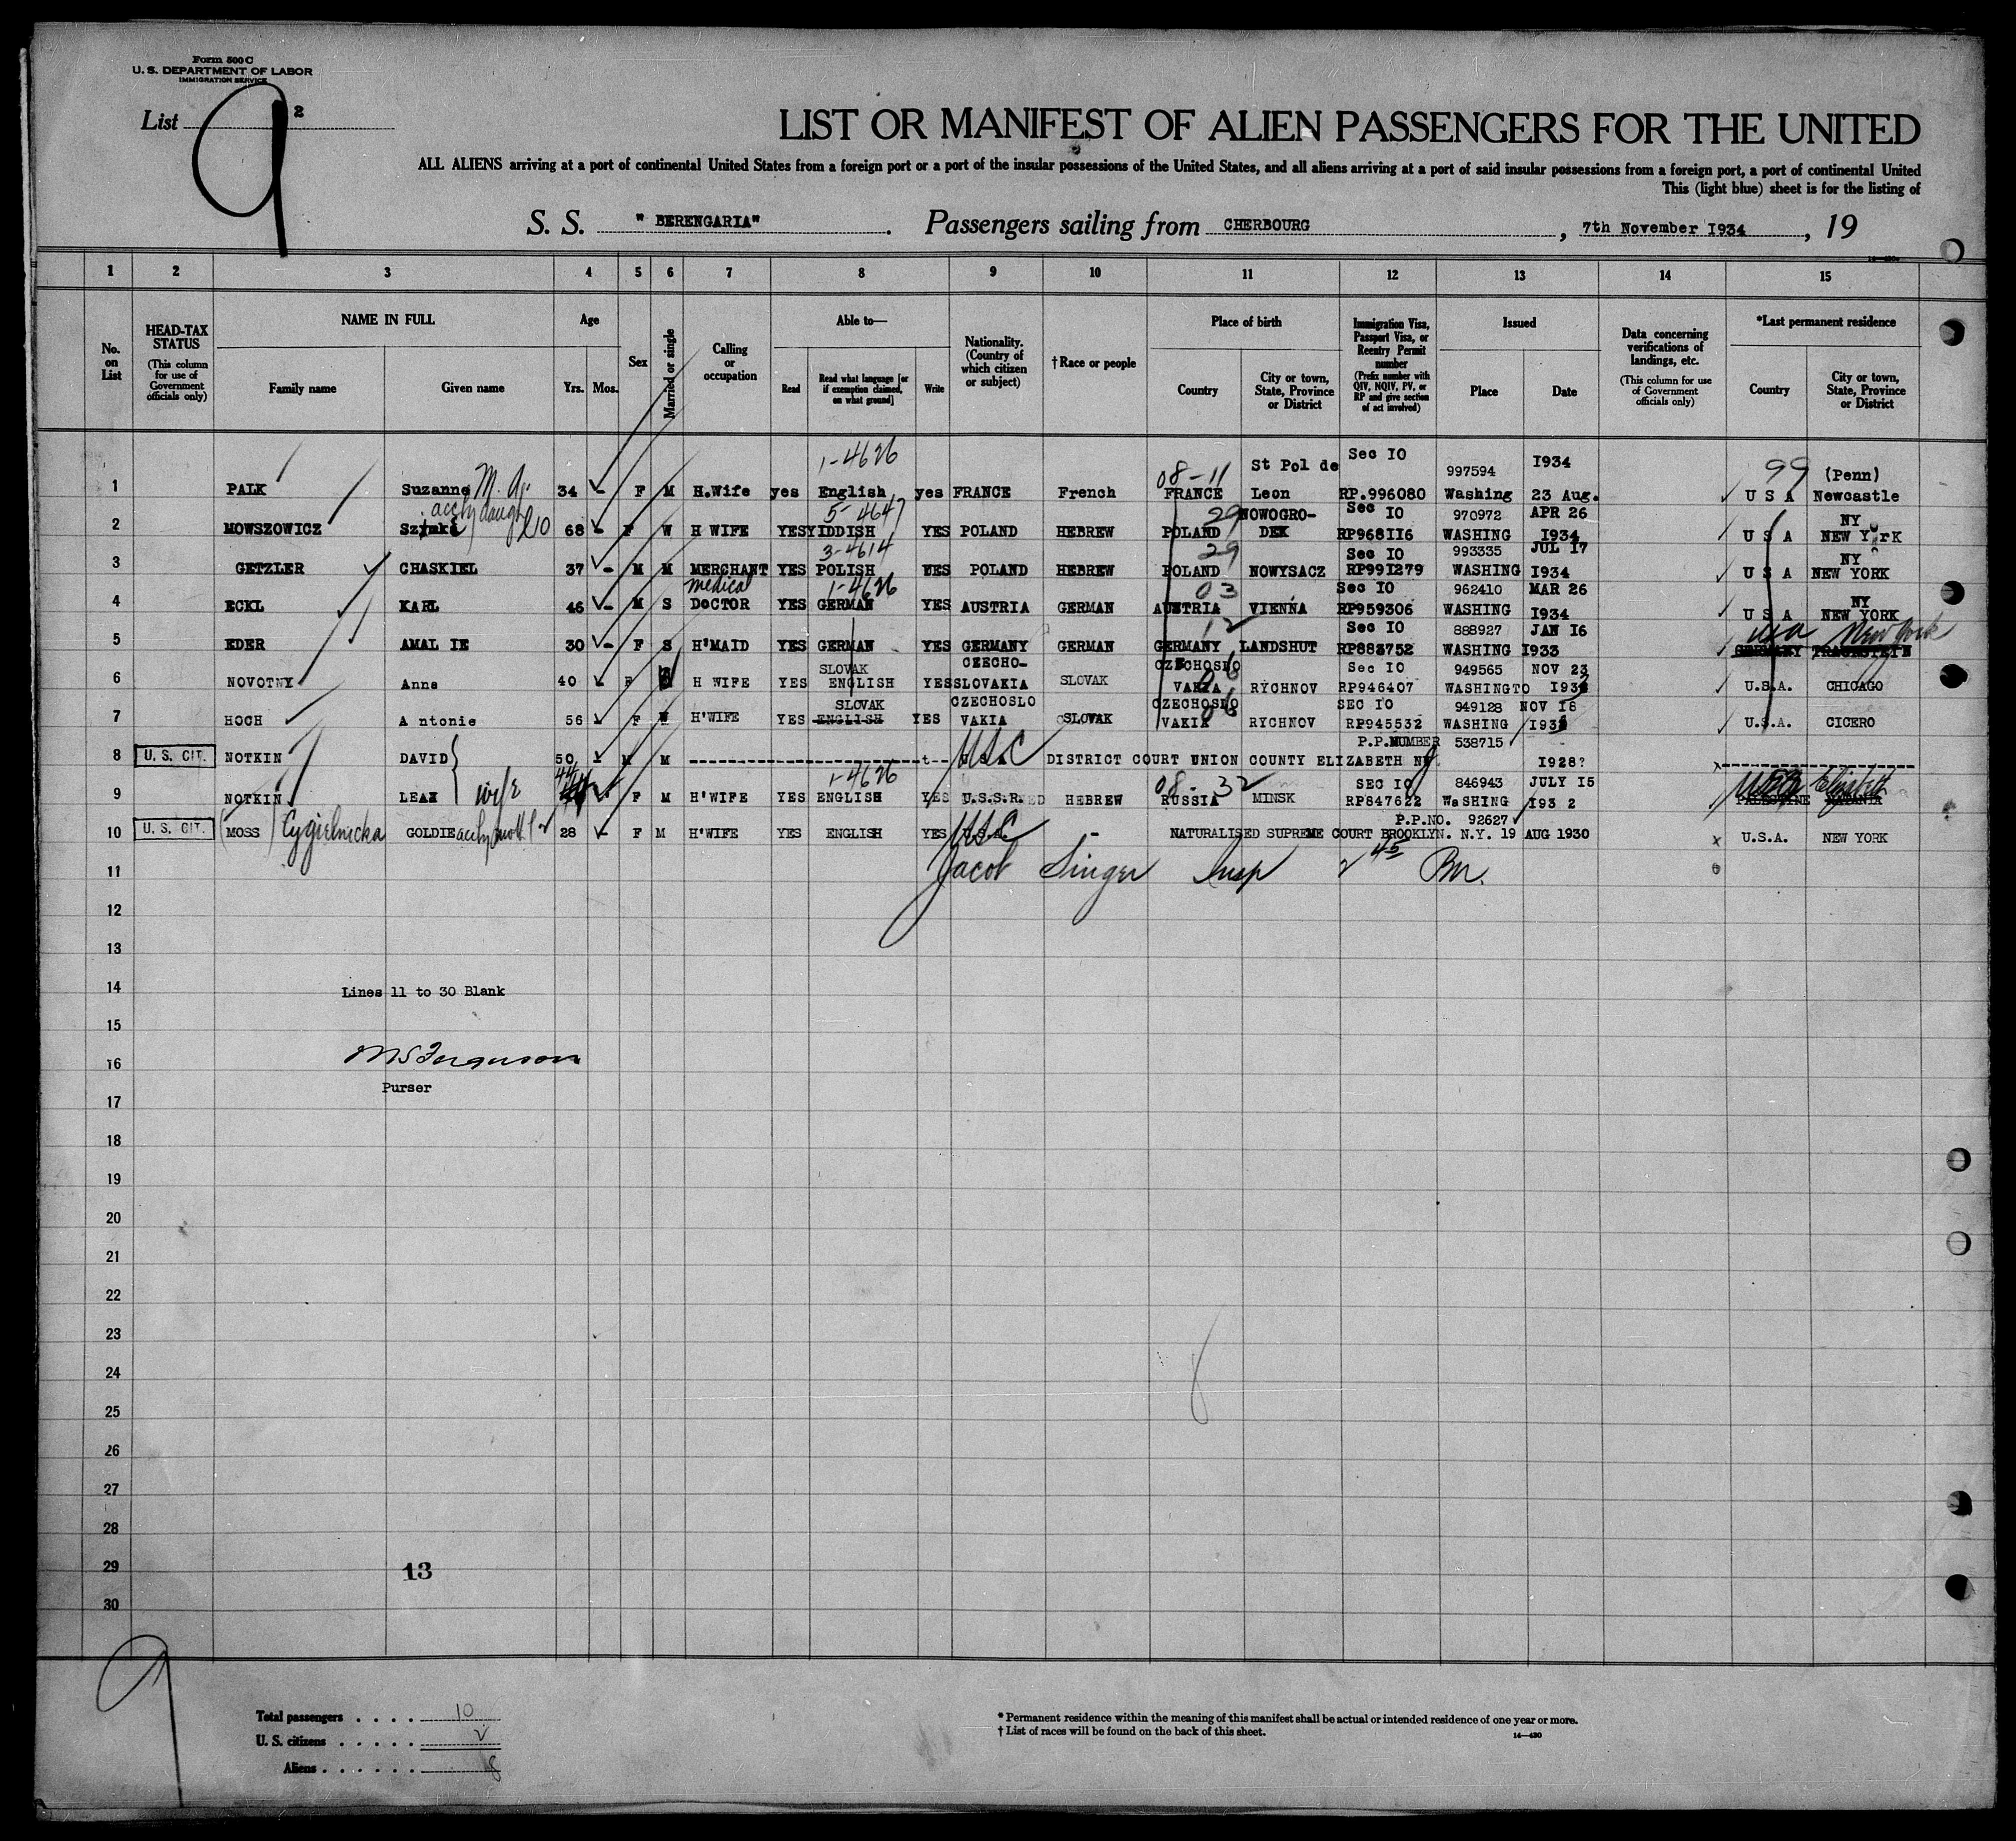 Form 500 C
U. S. DEPARTMENT OF LABOR
IMMIGRATION SERVICE
List 2
9
LIST OR MANIFEST OF ALIEN PASSENGERS FOR THE UNITED
ALL ALIENS arriving at a port of continental United States from a foreign port or a port of the insular possessions of the United States, and all aliens arriving at a port of said insular possessions from a foreign port, a port of continental United
This (light blue) sheet is for the listing of
S. S. " BERENGARIA" . Passengers sailing from CHERBOURG , 7th November 1934 , 19
1 2 3 4 5 6 7 8 9 10 11 12 13 14 15
No. on List
HEAD-TAX STATUS (This column for use of Government officials only)
NAME IN FULL Family name Given name
Age Yrs. Mos.
Sex
Married or single
Calling or occupation
Able to— Read Read what language [or if exemption claimed, on what ground] Write
Nationality. (Country of which citizen or subject)
† Race or people
Place of birth Country City or town, State, Province or District
Immigration Visa, Passport Visa, or Reentry Permit number (Prefix number with QIV, NQIV, PV, or RP and give section of act involved)
Issued Place Date
Data concerning verifications of landings, etc. (This column for use of Government officials only)
*Last permanent residence Country City or town, State, Province or District
1-4626 08-11 St Pol de Sec IO 997594 I934 99 (Penn)
1 PALK Suzanne M. 34 - F M H.Wife yes English yes FRANCE French FRANCE Leon RP.996080 Washing 23 Aug. U S A Newcastle
5-4647 29 NOWOGRO- Sec IO 970972 APR 26 NY
2 MOWSZOWICZ 68 - F W H WIFE YES YIDDISH YES POLAND HEBREW POLAND DEK RP968II6 WASHING I934 U S A NEW YORK
3-4614 29 Sec IO 993335 JUL I7 NY
3 GETZLER CHASKIEL 37 - M M MERCHANT YES POLISH YES POLAND HEBREW POLAND NOWYSACZ RP99I279 WASHING I934 U S A NEW YORK
medical 1-4626 03 Sec IO 962410 MAR 26 NY
4 ECKL KARL 46 - M S DOCTOR YES GERMAN YES AUSTRIA GERMAN AUSTRIA VIENNA RP959306 WASHING I934 U S A NEW YORK
12 Sec IO 888927 JAN I6 usa New York
5 EDER AMAL IE 30 - F S H'MAID YES GERMAN YES GERMANY GERMAN GERMANY LANDSHUT RP883752 WASHING I933 GERMANY TRAUNSTEIN
SLOVAK CZECHO- CZECHOSLO 06 Sec IO 949565 NOV 23
6 NOVOTNY Anna 40 F H WIFE YES ENGLISH YES SLOVAKIA SLOVAK VAKIA RYCHNOV RP946407 WASHINGTO U.S.A. CHICAGO
SLOVAK CZECHOSLO CZECHOSLO 06 SEC IO 949128
7 HOCH A ntonie 56 F W H'WIFE YES ENGLISH YES VAKIA SLOVAK VAKIA RYCHNOV RP945532 WASHING U.S.A. CICERO
P.P.NUMBER 538715
8 U. S. CIT. NOTKIN DAVID 50 M M USC DISTRICT COURT UNION COUNTY ELIZABETH NJ I928?
44 1-4626 08-32 SEC IO 846943 JULY I5 USA Elizabeth
9 NOTKIN LEAH wife F M H'WIFE YES ENGLISH YES U.S.S.R. HEBREW RUSSIA MINSK RP847622 WaSHING I93 2 PALESTINE
P.P.NO. 92627
10 U. S. CIT. (MOSS) Cygielnicka GOLDIE 28 - F M H'WIFE YES ENGLISH YES U.S.A. USC - NATURALISED SUPREME COURT BROOKLYN. N.Y. 19 AUG 1930 x U.S.A. NEW YORK
11 Jacob Singer Insp
12
13
14 Lines 11 to 30 Blank
15
16 M S Ferguson
Purser
17
18
19
20
21
22
23
24
25
26
27
28
29 13
30
9
Total passengers . . . . 10
U. S. citizens . . . . . 2
Aliens . . . . . . 8
* Permanent residence within the meaning of this manifest shall be actual or intended residence of one year or more.
† List of races will be found on the back of this sheet.
14—430